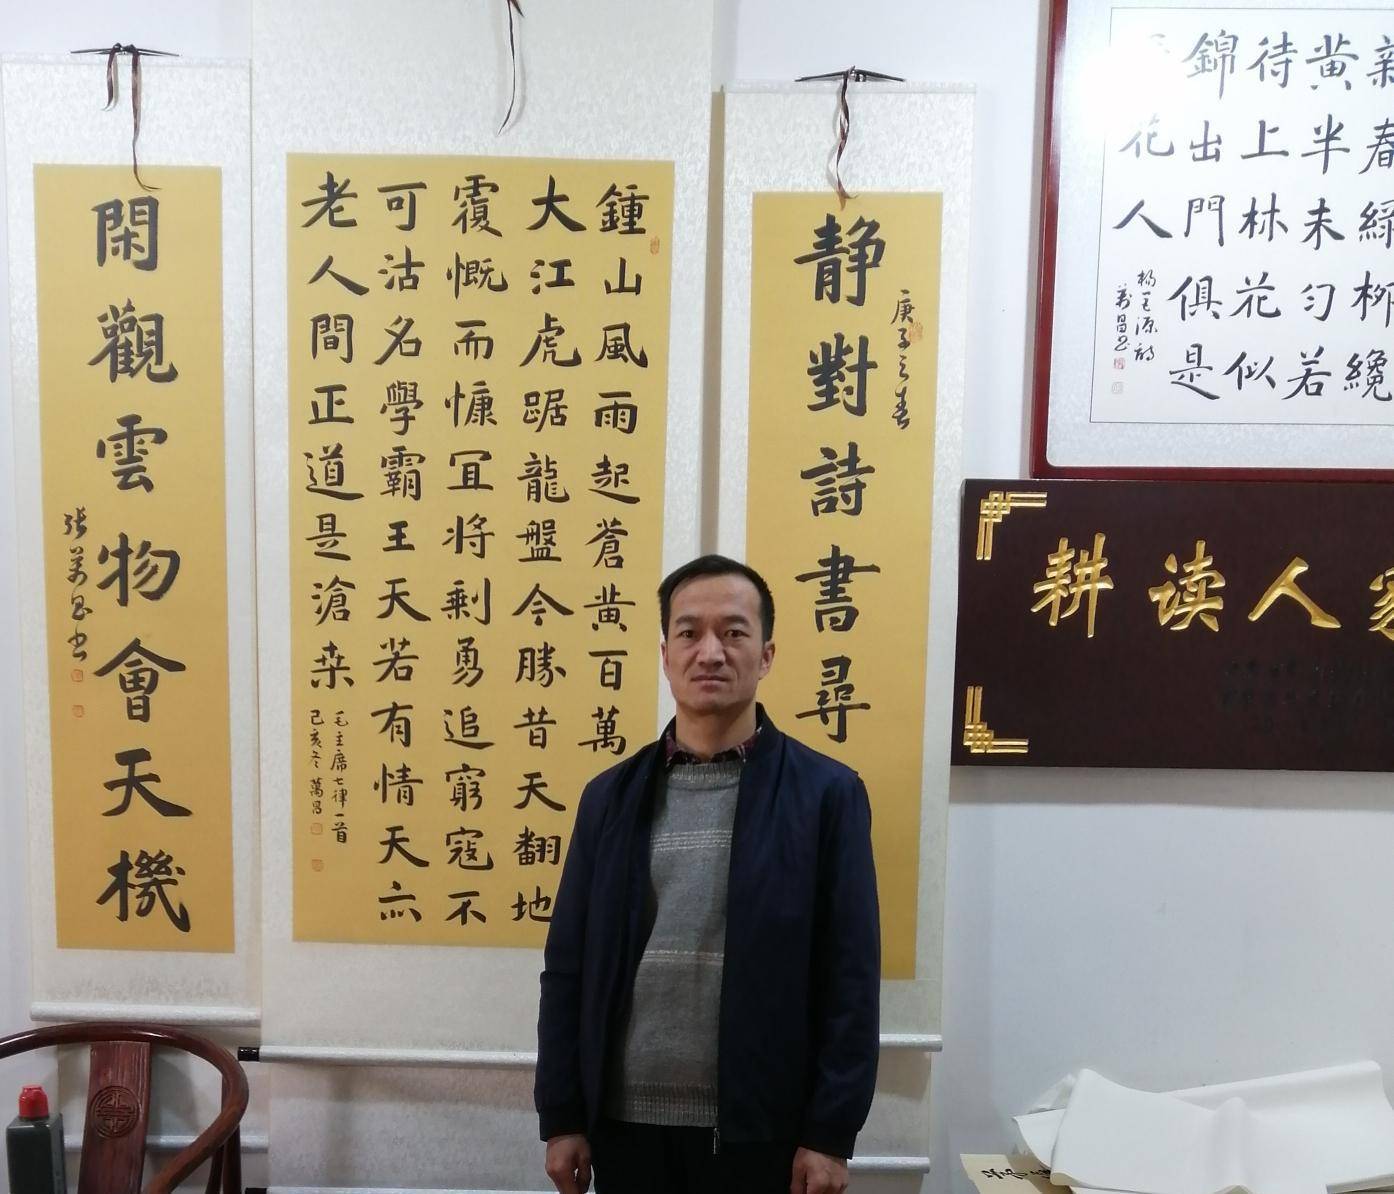 新春緑柳纔
黄半未匀若
待上林花似
錦出門俱是
花人
楊巨源詩
萬昌书
耕读人家
庚子之春
静對詩書尋
鍾山風雨起蒼黄百萬
大江虎踞龍盤今勝昔天翻地
覆慨而慷宜將剩勇追窮寇不
可沽名學霸王天若有情天亦
老人間正道是滄桑
毛主席七律一首
己亥冬萬昌
閑觀雲物會天機
张萬昌书